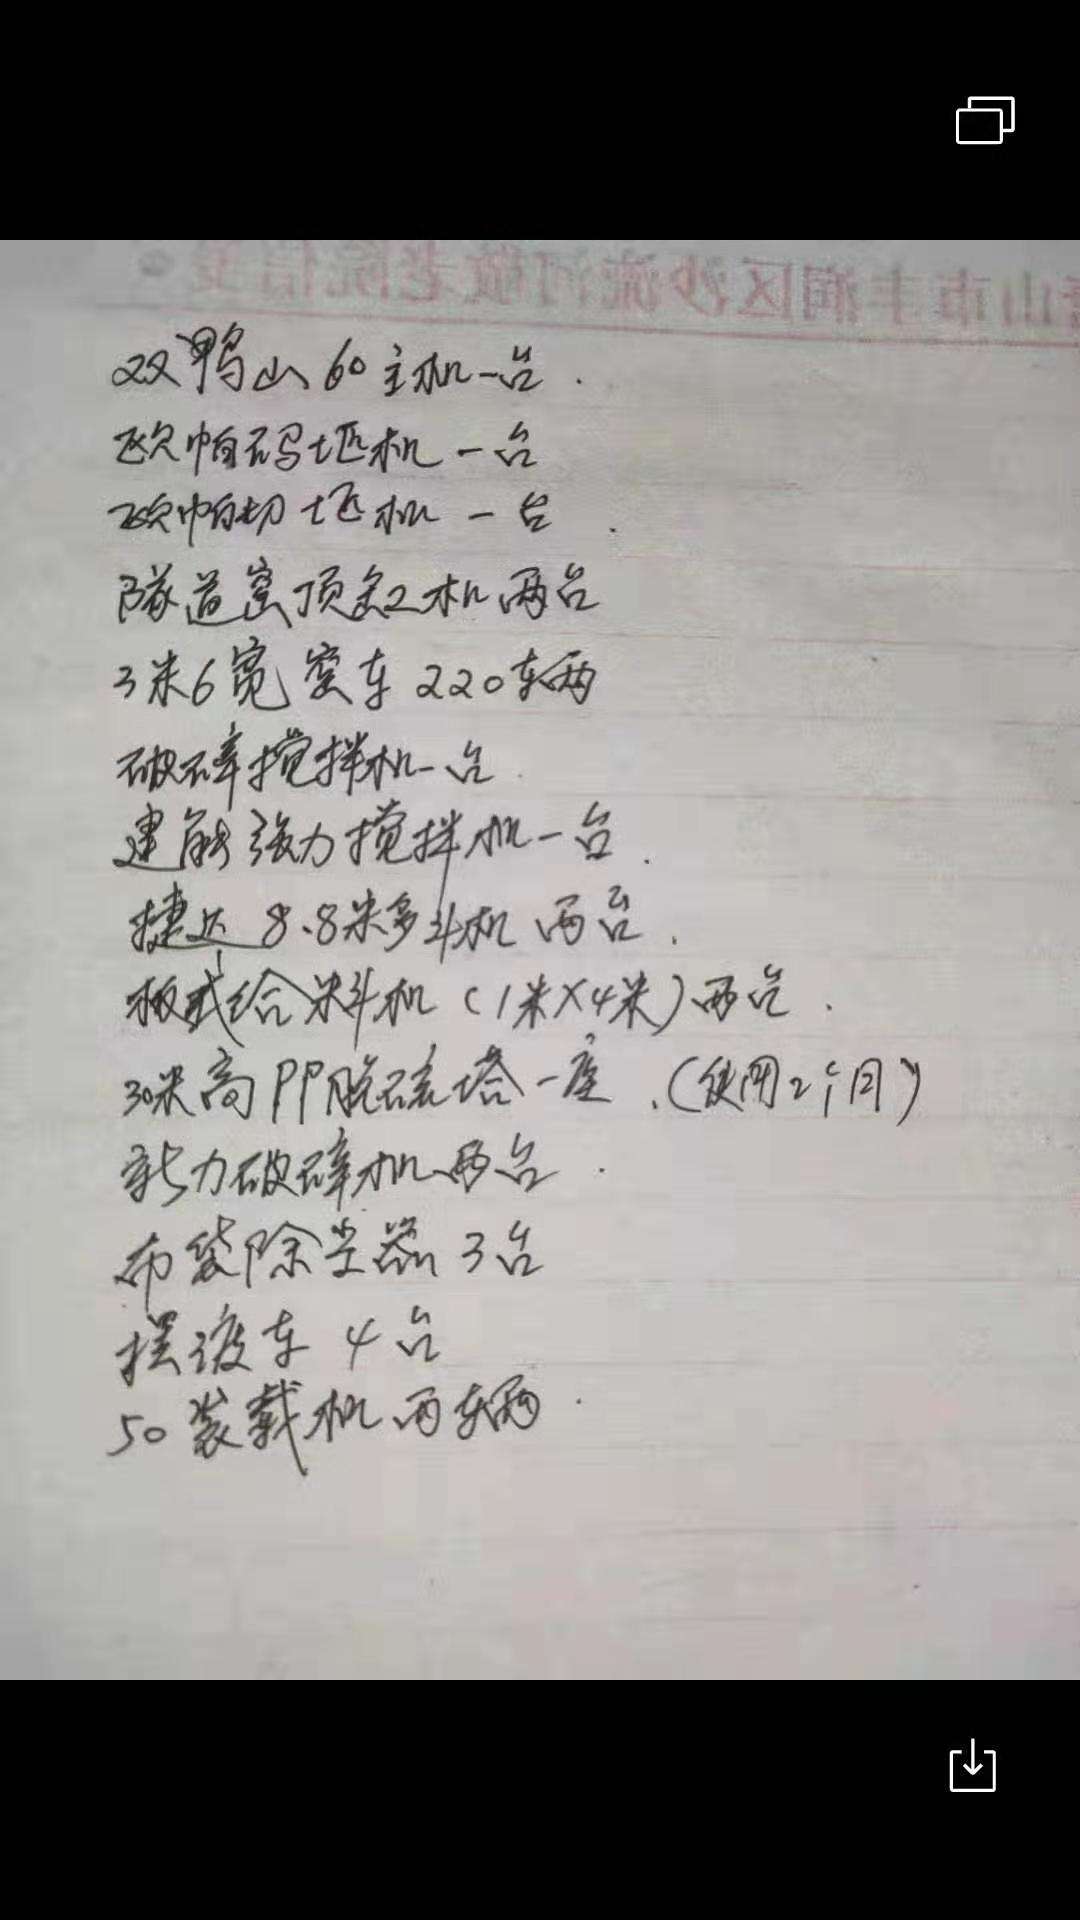 唐山市丰润区沙流河敬老院信笺
双鸭山60主机一台.
欧帕码坯机一台
欧帕切坯机一台.
隧道窑顶缸机两台
3米6宽窑车220车两
破碎搅拌机一台.
建能强力搅拌机一台.
捷达8.8米多斗机两台.
板式给料机(1米X4米)两台.
30米高PP脱硫塔一座.(使用2个月)
新力破碎机两台.
布袋除尘器3台
摆渡车4台
50装载机两车两.